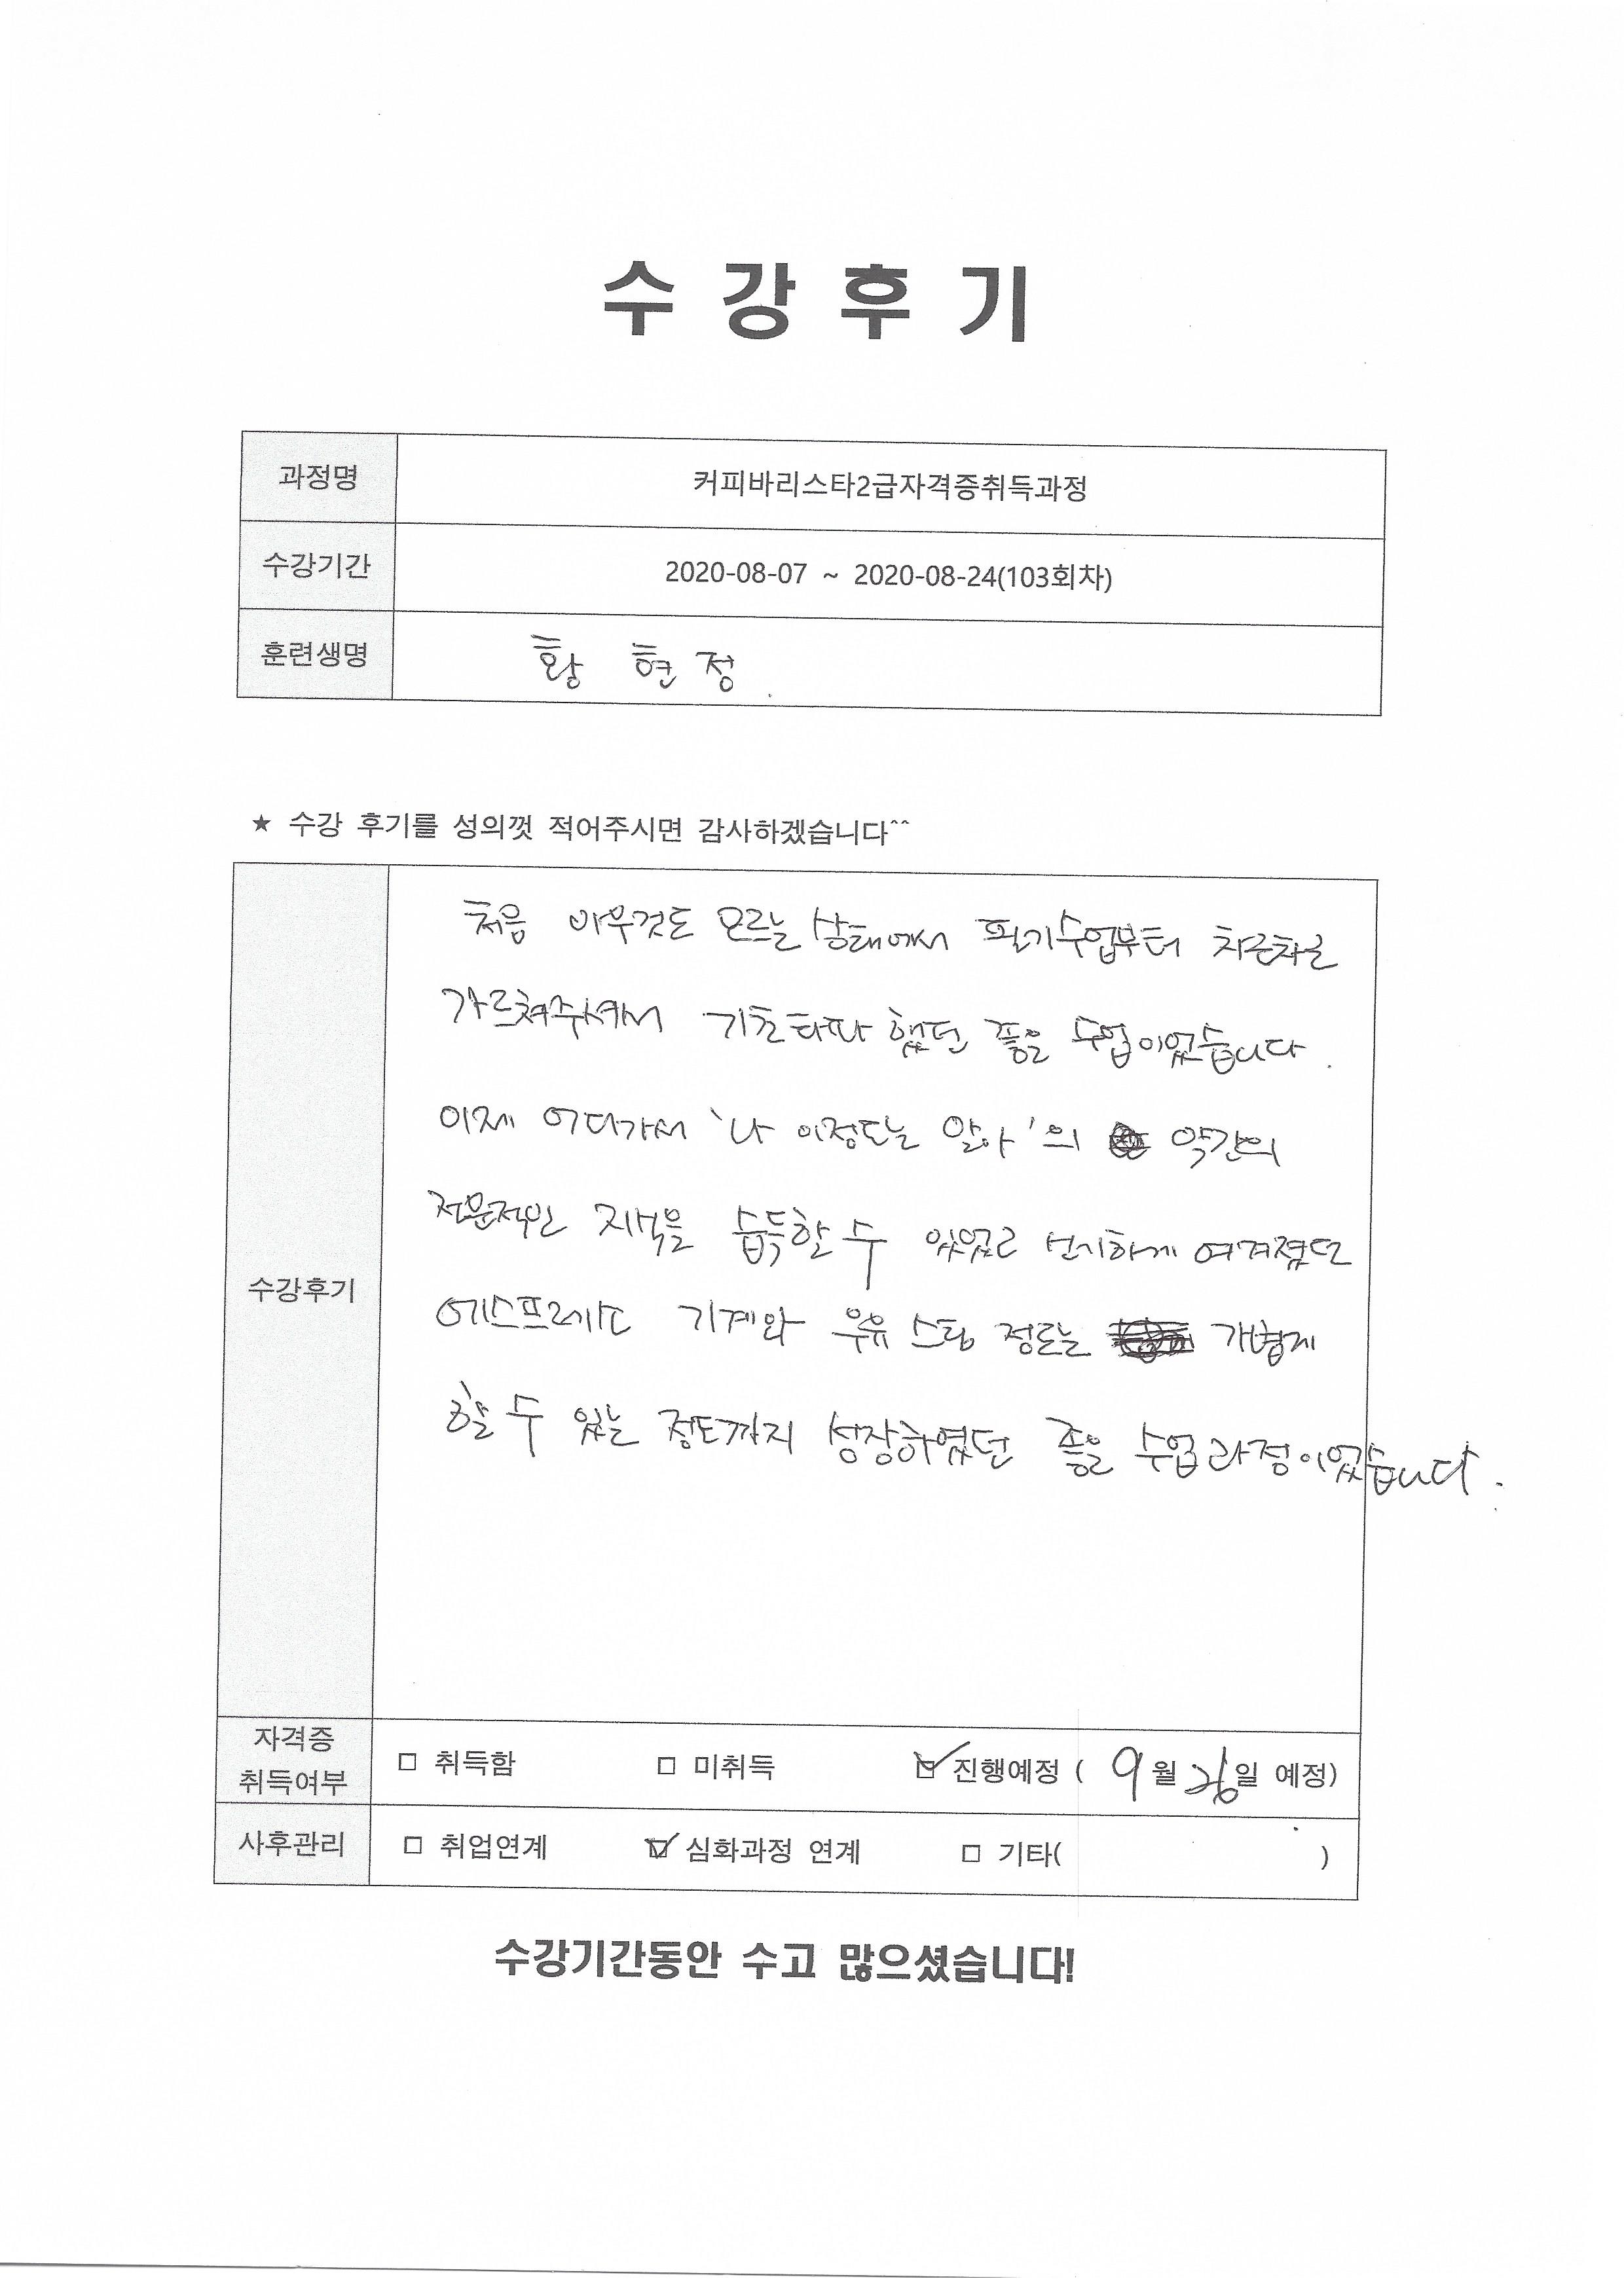 수강후기
과정명 커피바리스타2급자격증취득과정
수강기간 2020-08-07 ~ 2020-08-24(103회차)
훈련생명 황 현 정
★ 수강 후기를 성의껏 적어주시면 감사하겠습니다^^
수강후기
처음 아무것도 모르는 상태에서 필기수업부터 차근차근
가르쳐주셔서 기초타파 했던 좋은 수업이었습니다.
이제 어디가서 '나 이정도는 알아'의 약간의
전문적인 지식을 습득할 수 있었고 신기하게 여겨졌던
에스프레소 기계와 우유 스팀 정도는 가볍게
할 수 있는 정도까지 성장하였던 좋은 수업과정이었습니다.
자격증 취득여부 □ 취득함 □ 미취득 ☑ 진행예정 ( 9월 26일 예정)
사후관리 □ 취업연계 ☑ 심화과정 연계 □ 기타( )
수강기간동안 수고 많으셨습니다!